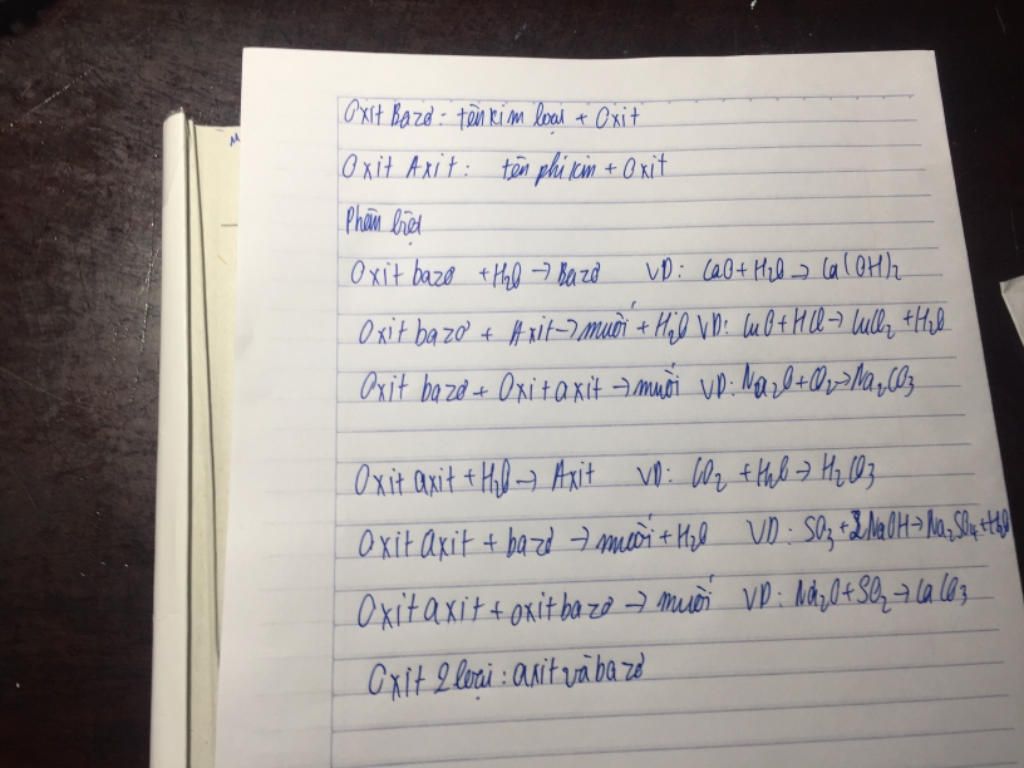 Oxit Bazơ: tên kim loại + Oxit
Oxit Axit: tên phi kim + Oxit
Phân biệt
Oxit bazơ + H₂O → Bazơ VD: CaO + H₂O → Ca(OH)₂
Oxit bazơ + Axit → muối + H₂O VD: CuO + HCl → CuCl₂ + H₂O
Oxit bazơ + Oxit axit → muối VD: Na₂O + CO₂ → Na₂CO₃
Oxit axit + H₂O → Axit VD: CO₂ + H₂O → H₂CO₃
Oxit axit + bazơ → muối + H₂O VD: SO₃ + 2NaOH → Na₂SO₄ + H₂O
Oxit axit + oxit bazơ → muối VD: Na₂O + SO₂ → CaCO₃
Oxit 2 loại: axit và bazơ